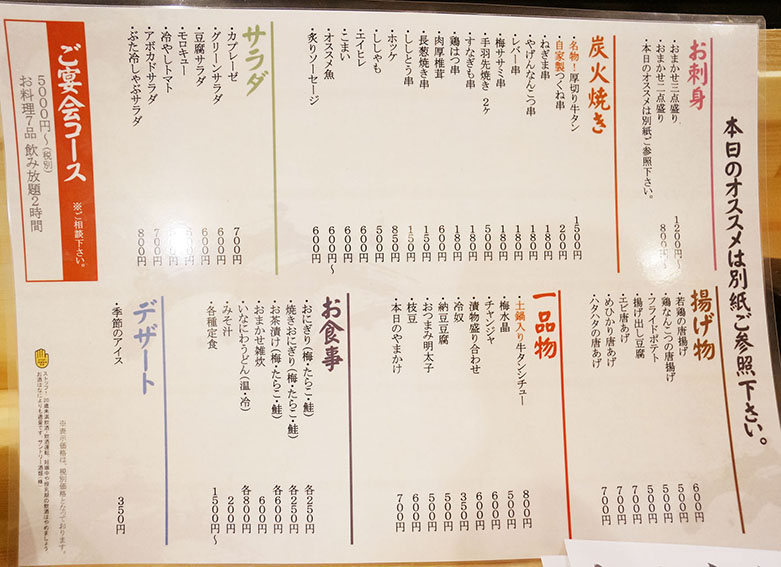 本日のオススメは別紙ご参照下さい。
お刺身
・おまかせ三点盛り 1200円〜
・おまかせ二点盛り 800円〜
・本日のオススメは別紙ご参照下さい。
炭火焼き
・名物!厚切り牛タン 1500円
・自家製つくね串 200円
・ねぎま串 180円
・やげんなんこつ串 180円
・レバー串 180円
・梅ササミ串 180円
・手羽先焼き 2ヶ 500円
・すなぎも串 180円
・鶏はつ串 180円
・肉厚椎茸 600円
・長葱焼き串 150円
・ししとう串 150円
・ホッケ 850円
・ししゃも 500円
・エイヒレ 600円
・こまい 600円
・オススメ魚 600円〜
・炙りソーセージ 600円
サラダ
・カプレーゼ 700円
・グリーンサラダ 600円
・豆腐サラダ 600円
・モロキュー 500円
・冷やしトマト 500円
・アボカドサラダ 700円
・ぶた冷しゃぶサラダ 800円
ご宴会コース ※ご相談下さい。
5000円〜(税別)
お料理7品 飲み放題2時間
揚げ物
・若鶏の唐揚げ 600円
・鶏なんこつの唐揚げ 500円
・フライドポテト 500円
・揚げ出し豆腐 500円
・エビ唐あげ 700円
・めひかり唐あげ 700円
・ハタハタの唐あげ 700円
一品物
・土鍋入り牛タンシチュー 800円
・梅水晶 500円
・チャンジャ 600円
・漬物盛り合わせ 600円
・冷奴 350円
・納豆豆腐 500円
・おつまみ明太子 500円
・枝豆 600円
・本日のやまかけ 700円
お食事
・おにぎり(梅・たらこ・鮭) 各250円
・焼きおにぎり(梅・たらこ・鮭) 各250円
・お茶漬け(梅・たらこ・鮭) 各600円
・おまかせ雑炊 600円
・いなにわうどん(温・冷) 各800円
・みそ汁 200円
・各種定食 1500円〜
デザート
・季節のアイス 350円
※表示価格は、税別価格となっております。
ストップ!20歳未満飲酒・飲酒運転。妊娠中や授乳期の飲酒はやめましょう。
お酒はなによりも適量です。サントリー酒類(株)